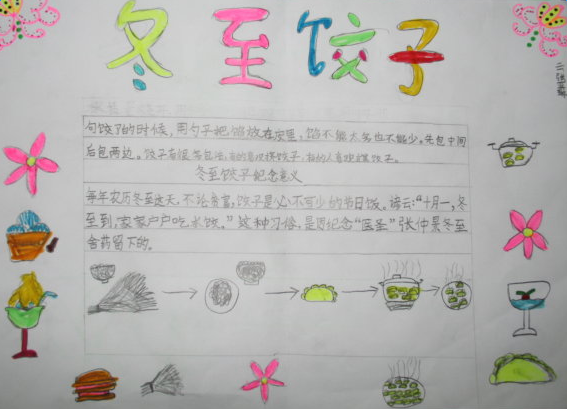 冬至饺子
二
句饺子的时候，用勺子把馅放在皮里，馅不能太多也不能少。先包中间
后包两边。饺子有很多包法，有的喜欢
冬至饺子纪念意义
每年农历冬至这天，不论贫富，饺子是必不可少的节日饭。谚云：“十月一，冬
至到，家家户户吃水饺。”这种习俗，是因纪念“医圣”张仲景冬至
舍药留下的。